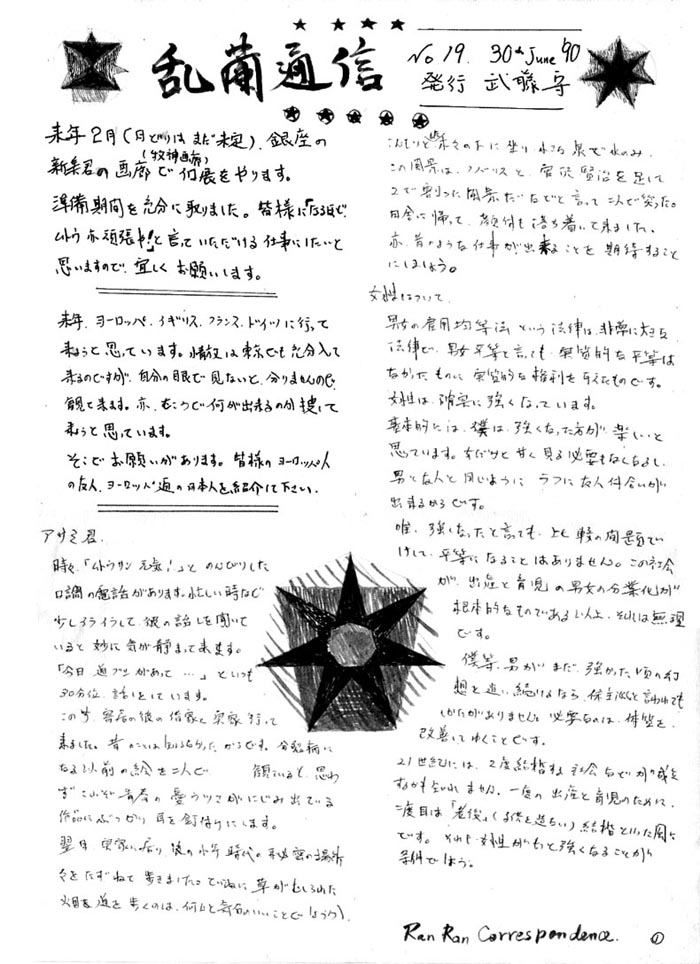 乱蘭通信
No 19. 30th June '90
発行 武藤守
来年2月(日どりはまだ未定)、銀座の
新築君の画廊(牧神画廊)で個展をやります。
準備期間を充分に取りました。皆様に「なるほど、
ムトウ亦頑張った!」と言っていただける仕事にしたいと
思いますので、宜しくお願いします。
来年、ヨーロッパ、イギリス、フランス、ドイツに行って
来ようと思っています。情報は東京でも充分入って
来るのですが、自分の眼で見ないと、分りませんので、
観て来ます。亦、むこうで何が出来るのか捜して
来ようと思っています。
そこでお願いがあります。皆様のヨーロッパ人
の友人、ヨーロッパ通の日本人を紹介して下さい。
アサミ君.
時々、「ムトウサン元気!」とのんびりした
口調の電話があります。忙しい時など
少しイライラして、彼の話しを聞いて
いると妙に気が静まって来ます。
「今日道ブツがあって…」といつも
30分位、話しをしています。
この
来ました。昔のことは知らなかったからです。分裂病に
なる以前の絵を二人で 観ていると、思わ
ず 青春の憂ウツさがにじみ出ている
作品にぶつかり、目を釘付けにします。
翌日、実家に居り、彼の少年時代の秘密の場所
々をたずねて歩きました。ていねいに草がむしられた
道を歩くのは、何んと気分のいいことでしょう。
の下に坐り、 泉で水のみ、
この風景は、ノバリスと、宮沢賢治を足して
2で割った風景だなどと言って二人で笑った。
田舎に帰って、顔付も落ち着いて来ました。
亦、昔のような仕事が出来ることを期待すること
にしましょう。
女性について.
男女の雇用均等法という法律は、非常に大きな
法律で、男女平等と言っても、実質的な平等は
なかったものに実質的な権利を与えたものです。
女性は、確実に強くなっています。
基本的には、僕は、強くなった方が楽しいと
思っています。女だからと甘く見る必要もなくなるし、
男と友人と同じようにラフに友人付合いが
出来るからです。
唯、強くなったと言っても、比較の問題で
けして、平等になることはありません。この社会
が、出産と育児の男女の分業化が
根本的なものである以上、それは無理
です。
僕等、男がまだ、強かった頃の幻
想を追い続けるなら、保主的と言われても
しかたがありません。必要なのは、体質を、
改善してゆくことです。
21世紀には、2度結婚する社会などが成立
するかも知れません。一度の出産と育児のために、
二度目は「老後」 結婚といった風に
です。それも女性がもっと強くなることが
条件でしょう。
Ran Ran Correspondence.
①